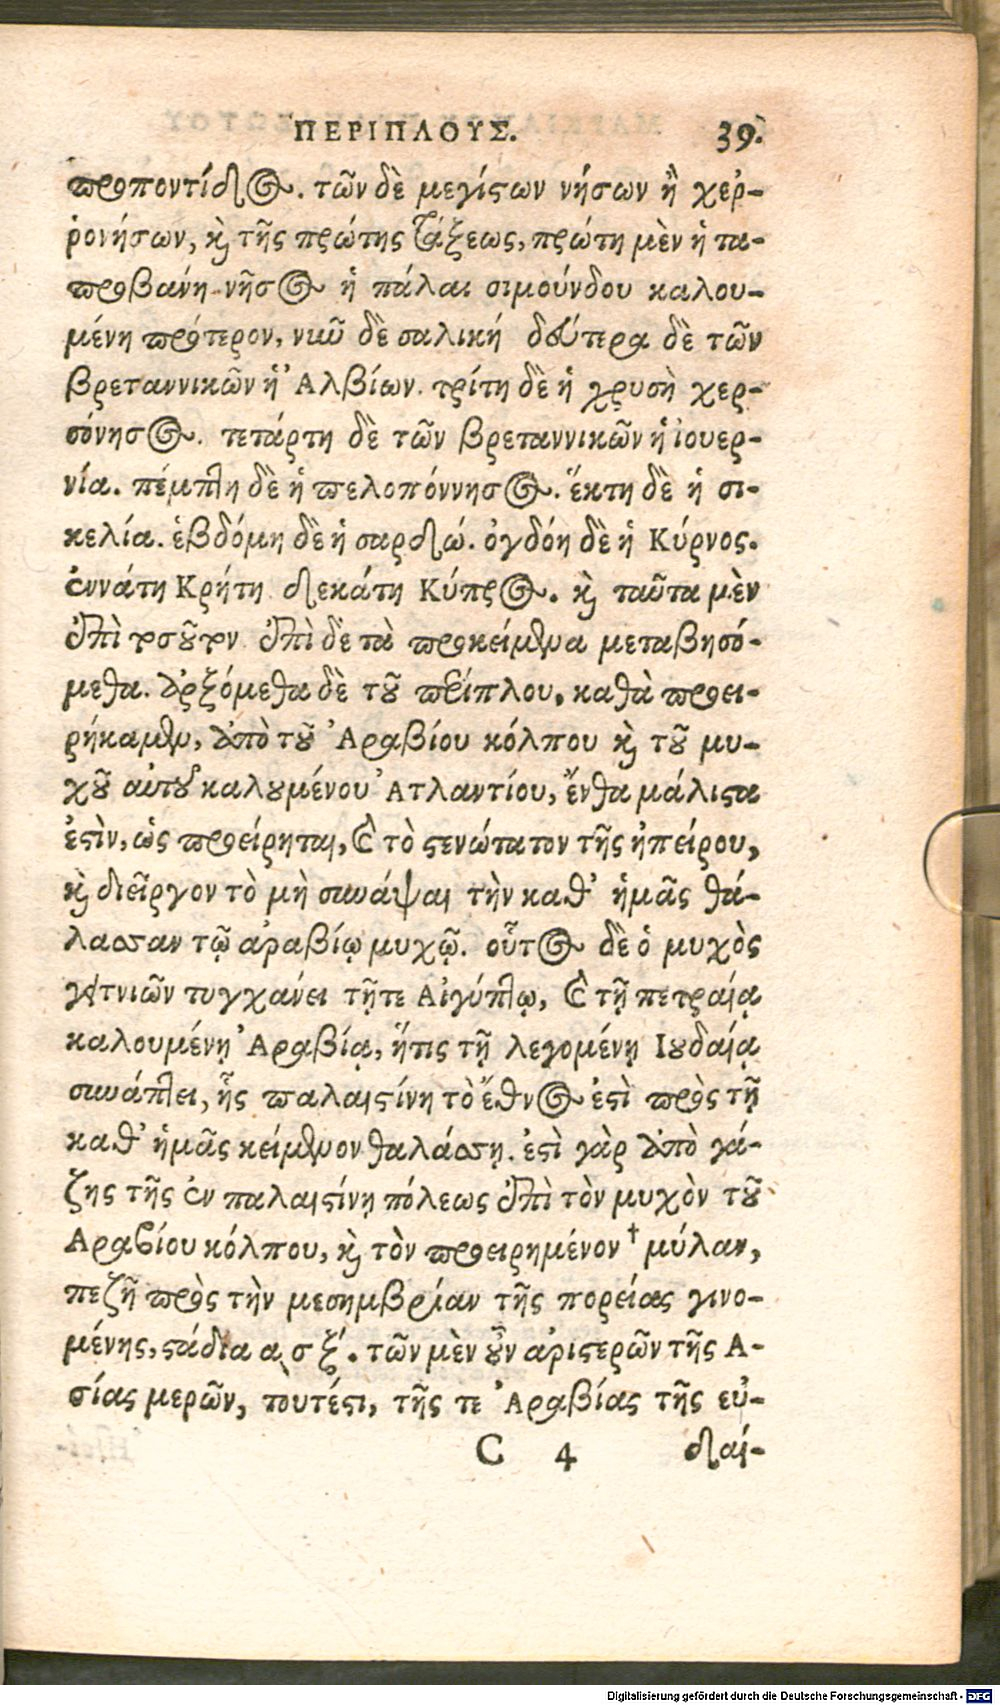 ΠΕΡΙΠΛΟΥΣ. 39.
προποντίδος. τῶν δὲ μεγίστων νήσων ἢ χερ-
ῥονήσων, καὶ τῆς πρώτης τάξεως, πρώτη μὲν ἡ τα-
προβάνη νῆσος ἡ πάλαι σιμούνδου καλου-
μένη πρότερον, νῦν δὲ σαλική δευτέρα δὲ τῶν
βρεταννικῶν ἡ Ἀλβίων. τρίτη δὲ ἡ χρυσὴ χερ-
σόνησος. τετάρτη δὲ τῶν βρεταννικῶν ἡ ἰουερ-
νία. πέμπτη δὲ ἡ πελοπόννησος. ἕκτη δὲ ἡ σι-
κελία. ἑβδόμη δὲ ἡ σαρδώ. ὀγδόη δὲ ἡ Κύρνος.
ἐννάτη Κρήτη δεκάτη Κύπρος. καὶ ταῦτα μὲν
ἐπὶ τοσοῦτον ἐπὶ δὲ τὰ προκείμενα μεταβησό-
μεθα. ἀρξόμεθα δὲ τοῦ περίπλου, καθὰ προει-
ρήκαμεν, ἀπὸ τοῦ Ἀραβίου κόλπου καὶ τοῦ μυ-
χοῦ αὐτοῦ καλουμένου Ἀτλαντίου, ἔνθα μάλιστα
ἐστὶν, ὡς προείρηται, καὶ τὸ στενώτατον τῆς ἠπείρου,
καὶ διεῖργον τὸ μὴ συνάψαι τὴν καθ' ἡμᾶς θά-
λασσαν τῷ ἀραβίῳ μυχῷ. οὗτος δὲ ὁ μυχὸς
γειτνιῶν τυγχάνει τῇτε Αἰγύπτῳ, καὶ τῇ πετραίᾳ
καλουμένῃ Ἀραβίᾳ, ἥτις τῇ λεγομένῃ Ιουδαίᾳ
συνάπτει, ἧς παλαιστίνη τὸ ἔθνος ἐστὶ πρὸς τῇ
καθ' ἡμᾶς κείμενον θαλάσσῃ. ἐστὶ γὰρ ἀπὸ γά-
ζης τῆς ἐν παλαιστίνῃ πόλεως ἐπὶ τὸν μυχὸν τοῦ
Αραβίου κόλπου, καὶ τὸν προειρημένον † μύλαν,
πεζῇ πρὸς τὴν μεσημβρίαν τῆς πορείας γινο-
μένης, στάδια α͵ σ ξ΄. τῶν μὲν οὖν ἀριστερῶν τῆς Α-
σίας μερῶν, τουτέστι, τῆς τε Ἀραβίας τῆς εὐ-
C 4 δαί-
Digitalisierung gefördert durch die Deutsche Forschungsgemeinschaft - DFG